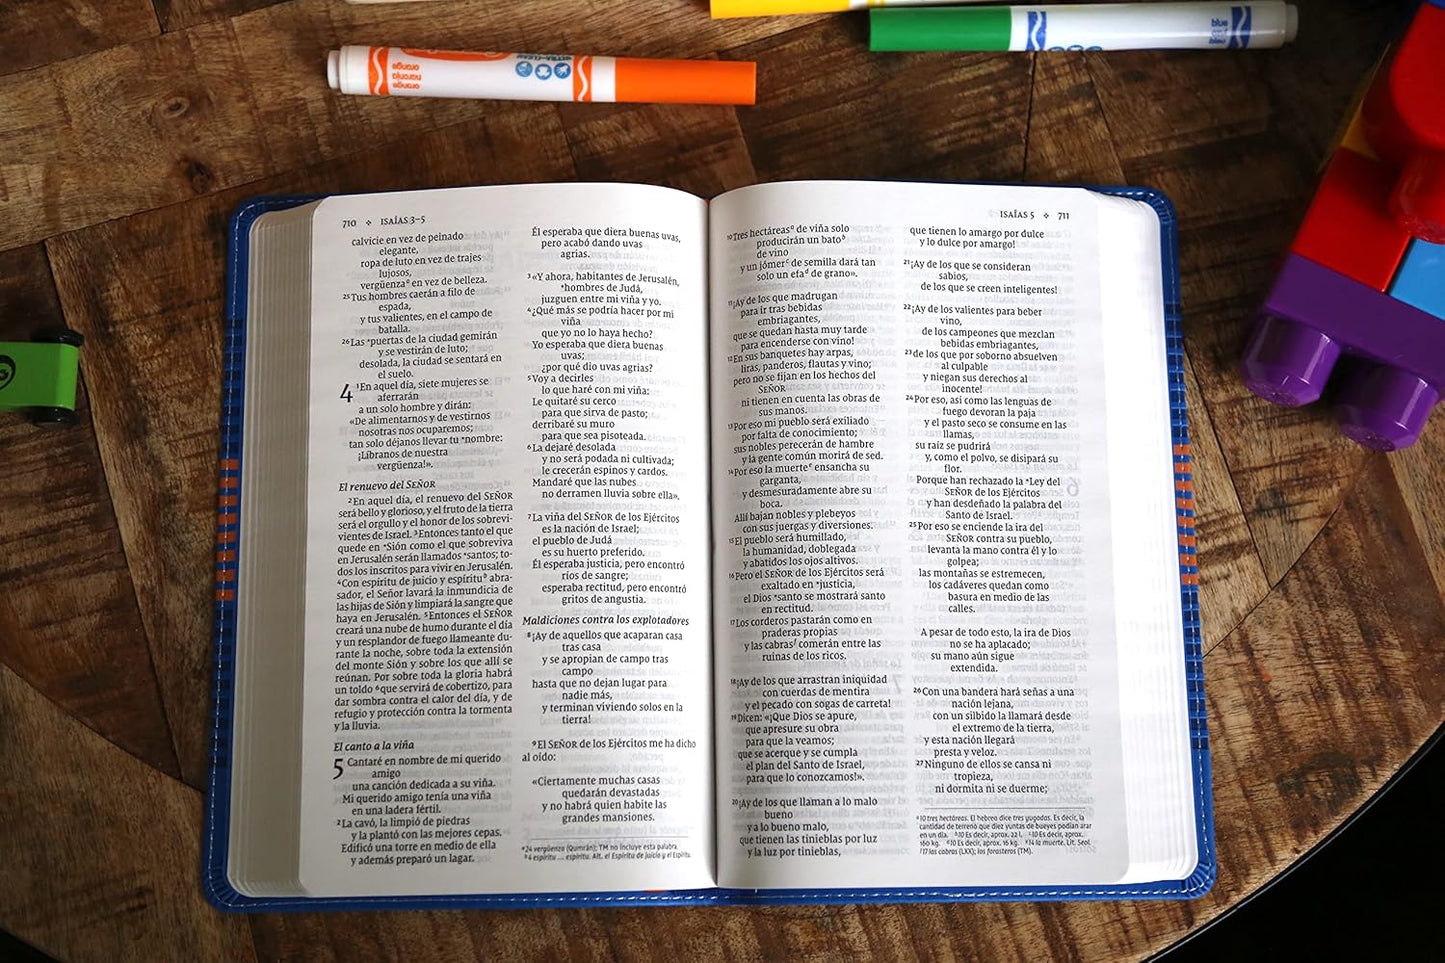 orange
naranja
orange
ULTRA-CLEAN
blue
azul
bleu
710 ✧ ISAÍAS 3–5
calvicie en vez de peinado
elegante,
ropa de luto en vez de trajes
lujosos,
vergüenzaᵃ en vez de belleza.
²⁵Tus hombres caerán a filo de
espada,
y tus valientes, en el campo de
batalla.
²⁶Las *puertas de la ciudad gemirán
y se vestirán de luto;
desolada, la ciudad se sentará en
el suelo.
4 ¹En aquel día, siete mujeres se
aferrarán
a un solo hombre y dirán:
«De alimentarnos y de vestirnos
nosotras nos ocuparemos;
tan solo déjanos llevar tu *nombre:
¡Líbranos de nuestra
vergüenza!».
El renuevo del SEÑOR
²En aquel día, el renuevo del SEÑOR
será bello y glorioso, y el fruto de la tierra
será el orgullo y el honor de los sobrevi-
vientes de Israel. ³Entonces tanto el que
quede en *Sión como el que sobreviva
en Jerusalén serán llamados *santos; to-
dos los inscritos para vivir en Jerusalén.
⁴Con espíritu de juicio y espírituᵇ abra-
sador, el Señor lavará la inmundicia de
las hijas de Sión y limpiará la sangre que
haya en Jerusalén. ⁵Entonces el SEÑOR
creará una nube de humo durante el día
y un resplandor de fuego llameante du-
rante la noche, sobre toda la extensión
del monte Sión y sobre los que allí se
reúnan. Por sobre toda la gloria habrá
un toldo ⁶que servirá de cobertizo, para
dar sombra contra el calor del día, y de
refugio y protección contra la tormenta
y la lluvia.
El canto a la viña
5 Cantaré en nombre de mi querido
amigo
una canción dedicada a su viña.
Mi querido amigo tenía una viña
en una ladera fértil.
²La cavó, la limpió de piedras
y la plantó con las mejores cepas.
Edificó una torre en medio de ella
y además preparó un lagar.
Él esperaba que diera buenas uvas,
pero acabó dando uvas
agrias.
³«Y ahora, habitantes de Jerusalén,
*hombres de Judá,
juzguen entre mi viña y yo.
⁴¿Qué más se podría hacer por mi
viña
que yo no lo haya hecho?
Yo esperaba que diera buenas
uvas;
¿por qué dio uvas agrias?
⁵Voy a decirles
lo que haré con mi viña:
Le quitaré su cerco
para que sirva de pasto;
derribaré su muro
para que sea pisoteada.
⁶La dejaré desolada
y no será podada ni cultivada;
le crecerán espinos y cardos.
Mandaré que las nubes
no derramen lluvia sobre ella».
⁷La viña del SEÑOR de los Ejércitos
es la nación de Israel;
el pueblo de Judá
es su huerto preferido.
Él esperaba justicia, pero encontró
ríos de sangre;
esperaba rectitud, pero encontró
gritos de angustia.
Maldiciones contra los explotadores
⁸¡Ay de aquellos que acaparan casa
tras casa
y se apropian de campo tras
campo
hasta que no dejan lugar para
nadie más,
y terminan viviendo solos en la
tierra!
⁹El SEÑOR de los Ejércitos me ha dicho
al oído:
«Ciertamente muchas casas
quedarán devastadas
y no habrá quien habite las
grandes mansiones.
ᵃ24 vergüenza (Qumrán); TM no incluye esta palabra.
ᵇ4 espíritu ... espíritu. Alt. el Espíritu de juicio y el Espíritu.
ISAÍAS 5 ✧ 711
¹⁰Tres hectáreasᵃ de viña solo
producirán un batoᵇ
de vino
y un jómerᶜ de semilla dará tan
solo un efaᵈ de grano».
¹¹¡Ay de los que madrugan
para ir tras bebidas
embriagantes,
que se quedan hasta muy tarde
para encenderse con vino!
¹²En sus banquetes hay arpas,
liras, panderos, flautas y vino;
pero no se fijan en los hechos del
SEÑOR
ni tienen en cuenta las obras de
sus manos.
¹³Por eso mi pueblo será exiliado
por falta de conocimiento;
sus nobles perecerán de hambre
y la gente común morirá de sed.
¹⁴Por eso la muerteᵉ ensancha su
garganta,
y desmesuradamente abre su
boca.
Allí bajan nobles y plebeyos
con sus juergas y diversiones.
¹⁵El pueblo será humillado,
la humanidad, doblegada
y abatidos los ojos altivos.
¹⁶Pero el SEÑOR de los Ejércitos será
exaltado en *justicia,
el Dios *santo se mostrará santo
en rectitud.
¹⁷Los corderos pastarán como en
praderas propias
y las cabrasᶠ comerán entre las
ruinas de los ricos.
¹⁸¡Ay de los que arrastran iniquidad
con cuerdas de mentira
y el pecado con sogas de carreta!
¹⁹Dicen: «¡Que Dios se apure,
que apresure su obra
para que la veamos;
que se acerque y se cumpla
el plan del Santo de Israel,
para que lo conozcamos!».
²⁰¡Ay de los que llaman a lo malo
bueno
y a lo bueno malo,
que tienen las tinieblas por luz
y la luz por tinieblas,
que tienen lo amargo por dulce
y lo dulce por amargo!
²¹¡Ay de los que se consideran
sabios,
de los que se creen inteligentes!
²²¡Ay de los valientes para beber
vino,
de los campeones que mezclan
bebidas embriagantes,
²³de los que por soborno absuelven
al culpable
y niegan sus derechos al
inocente!
²⁴Por eso, así como las lenguas de
fuego devoran la paja
y el pasto seco se consume en las
llamas,
su raíz se pudrirá
y, como el polvo, se disipará su
flor.
Porque han rechazado la *Ley del
SEÑOR de los Ejércitos
y han desdeñado la palabra del
Santo de Israel.
²⁵Por eso se enciende la ira del
SEÑOR contra su pueblo,
levanta la mano contra él y lo
golpea;
las montañas se estremecen,
los cadáveres quedan como
basura en medio de las
calles.
A pesar de todo esto, la ira de Dios
no se ha aplacado;
su mano aún sigue
extendida.
²⁶Con una bandera hará señas a una
nación lejana,
con un silbido la llamará desde
el extremo de la tierra,
y esta nación llegará
presta y veloz.
²⁷Ninguno de ellos se cansa ni
tropieza,
ni dormita ni se duerme;
ᵃ10 tres hectáreas. El hebreo dice tres yugadas. Es decir, la
cantidad de terreno que diez yuntas de bueyes podían arar
en un día. ᵇ10 Es decir, aprox. 22 l. ᶜ10 Es decir, aprox.
160 kg. ᵈ10 Es decir, aprox. 16 kg. ᵉ14 la muerte. Lit. Seol.
ᶠ17 las cabras (LXX); los forasteros (TM).